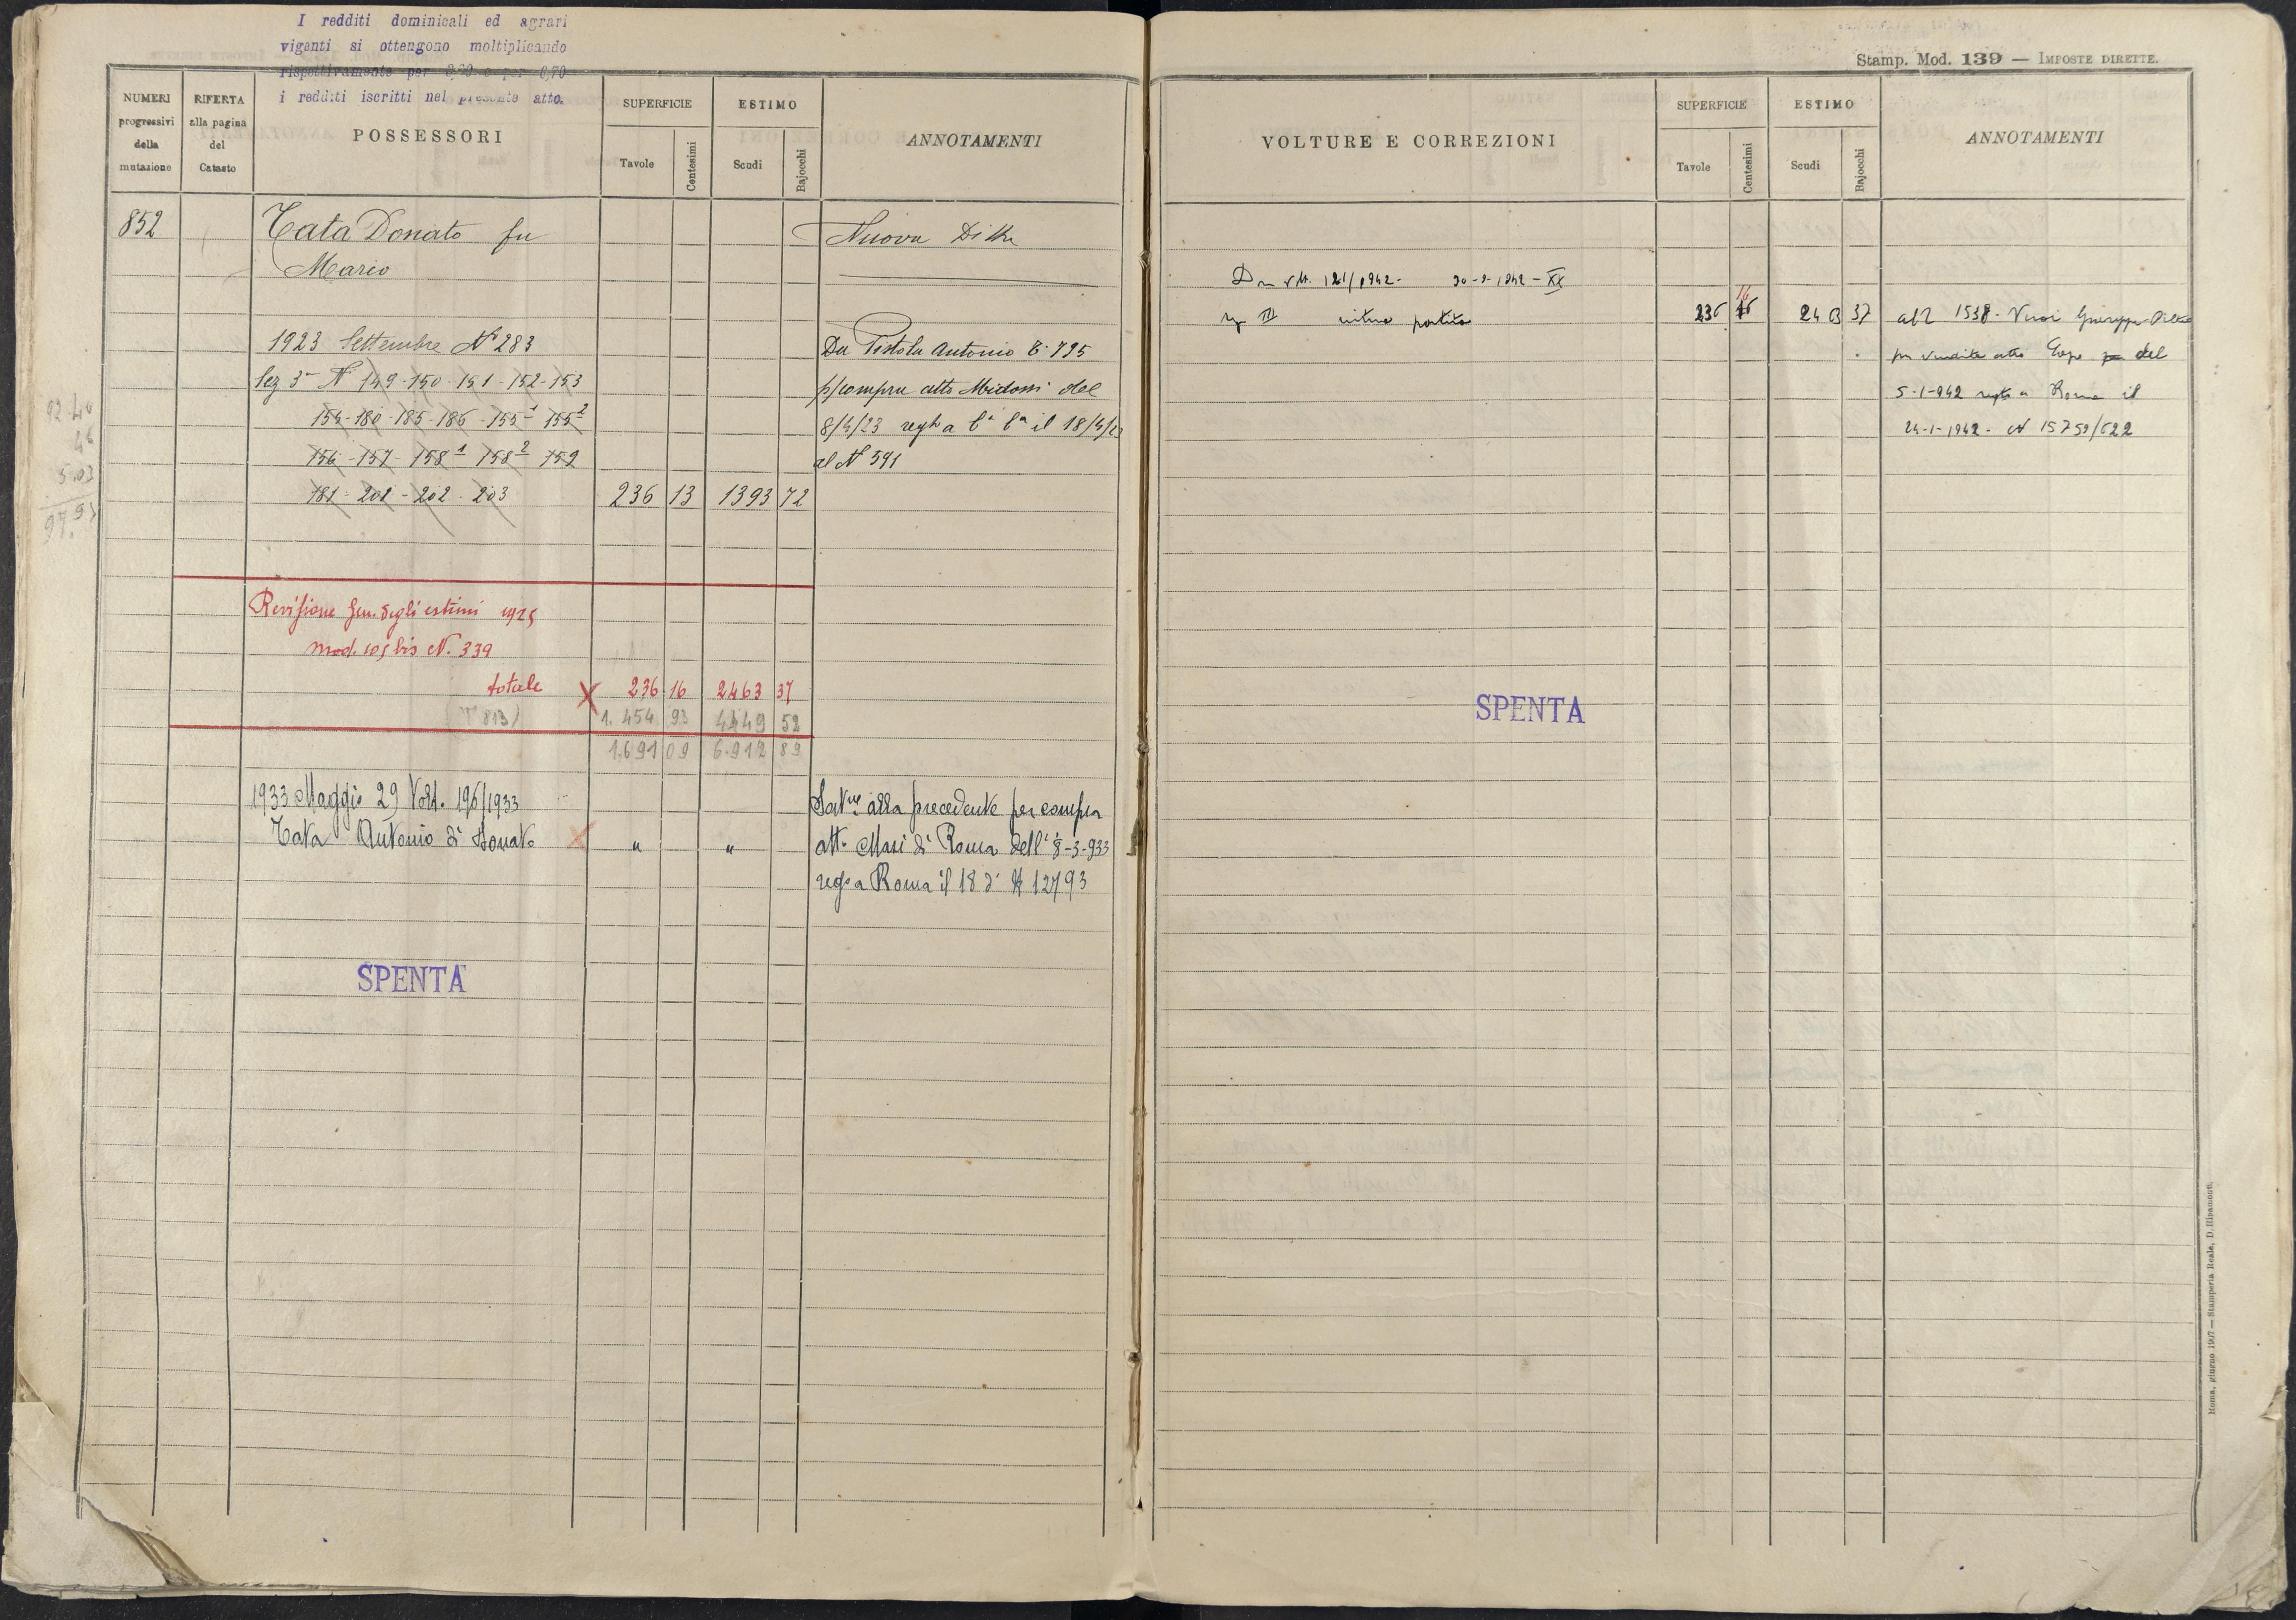 I redditi dominicali ed agrari
vigenti si ottengono moltiplicando
rispettivamente per e per 0,70
i redditi iscritti nel presente atto.
NUMERI progressivi della mutazione
RIFERTA alla pagina del Catasto
POSSESSORI
SUPERFICIE
Tavole
Centesimi
ESTIMO
Scudi
Bajocchi
ANNOTAMENTI
852
Tata Donato fu
Mario
Nuova Ditta
1923 Settembre N° 283
Sez 3ª N 149-150-151-152-153
154-180-185-186-155 1 155 2
156-157-158 1 158 2 159
181-201-202-203 236 13 1393 72
Da Pistola Antonio C. 795
p/compra atto Midossi del
8/4/23 regto a il 18/4/23
al N 591
92.40
46
5.03
97.93
Revisione Gen. degli estimi 1925
mod. bis N. 339
totale 236 16 2463 37
(T 813) 1.454 93 4449 52
1.691 09 6.912 89
1933 Maggio 29 Volt. 196/1933
Tata Antonio di Donato " "
alla precedente per compra
atto Masi di Roma dell' 8-3-933
rego a Roma il 18 d° N 12793
SPENTA
Stamp. Mod. 139 — IMPOSTE DIRETTE.
VOLTURE E CORREZIONI
SUPERFICIE
Tavole
Centesimi
ESTIMO
Scudi
Bajocchi
ANNOTAMENTI
121/1942- 1942-XX
III intera partita 236 16 2463 37
all 1538. Giuseppe
per vendita atto del
5-1-942 a Roma il
24-1-1942- N 15759/622
SPENTA
Roma, giugno 1907 — Stamperia Reale, D. Ripamonti.